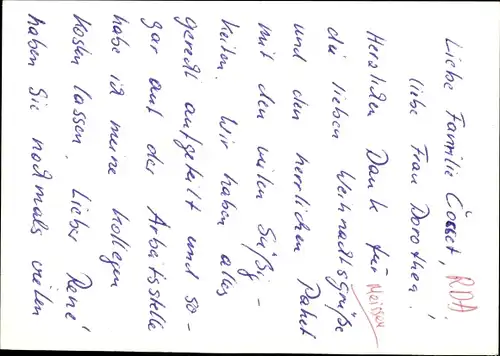 Liebe Familie Cosset, RDA
liebe Frau Dorothea!
Herzlichen Dank für Meissen
die lieben Weihnachtsgrüße
und den herrlichen Paket
mit den vielen Süßig-
keiten. Wir haben alles
gerecht aufgeteilt und so-
gar auf der Arbeitsstelle
habe ich meine Kollegen
kosten lassen. Lieber René
haben Sie nochmals vielen